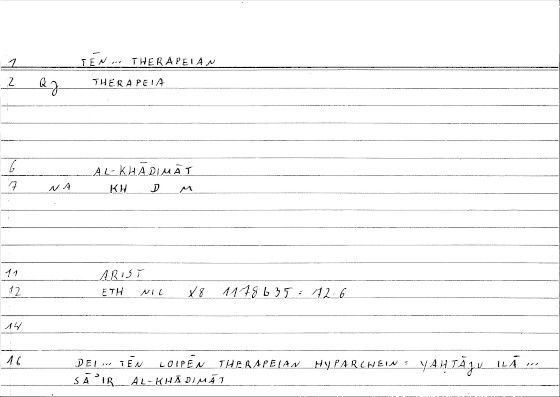 1 TĒN... THERAPEIAN
2 Qg THERAPEIA
6 AL-KHĀDIMĀT
7 NA KH D M
11 ARIST
12 ETH NIC X8 1178b35 : 12.6
14
16 DEI... TĒN LOIPĒN THERAPEIAN HYPARCHEIN : YAḤTĀJU ILĀ...
SĀʾIR AL-KHĀDIMĀT